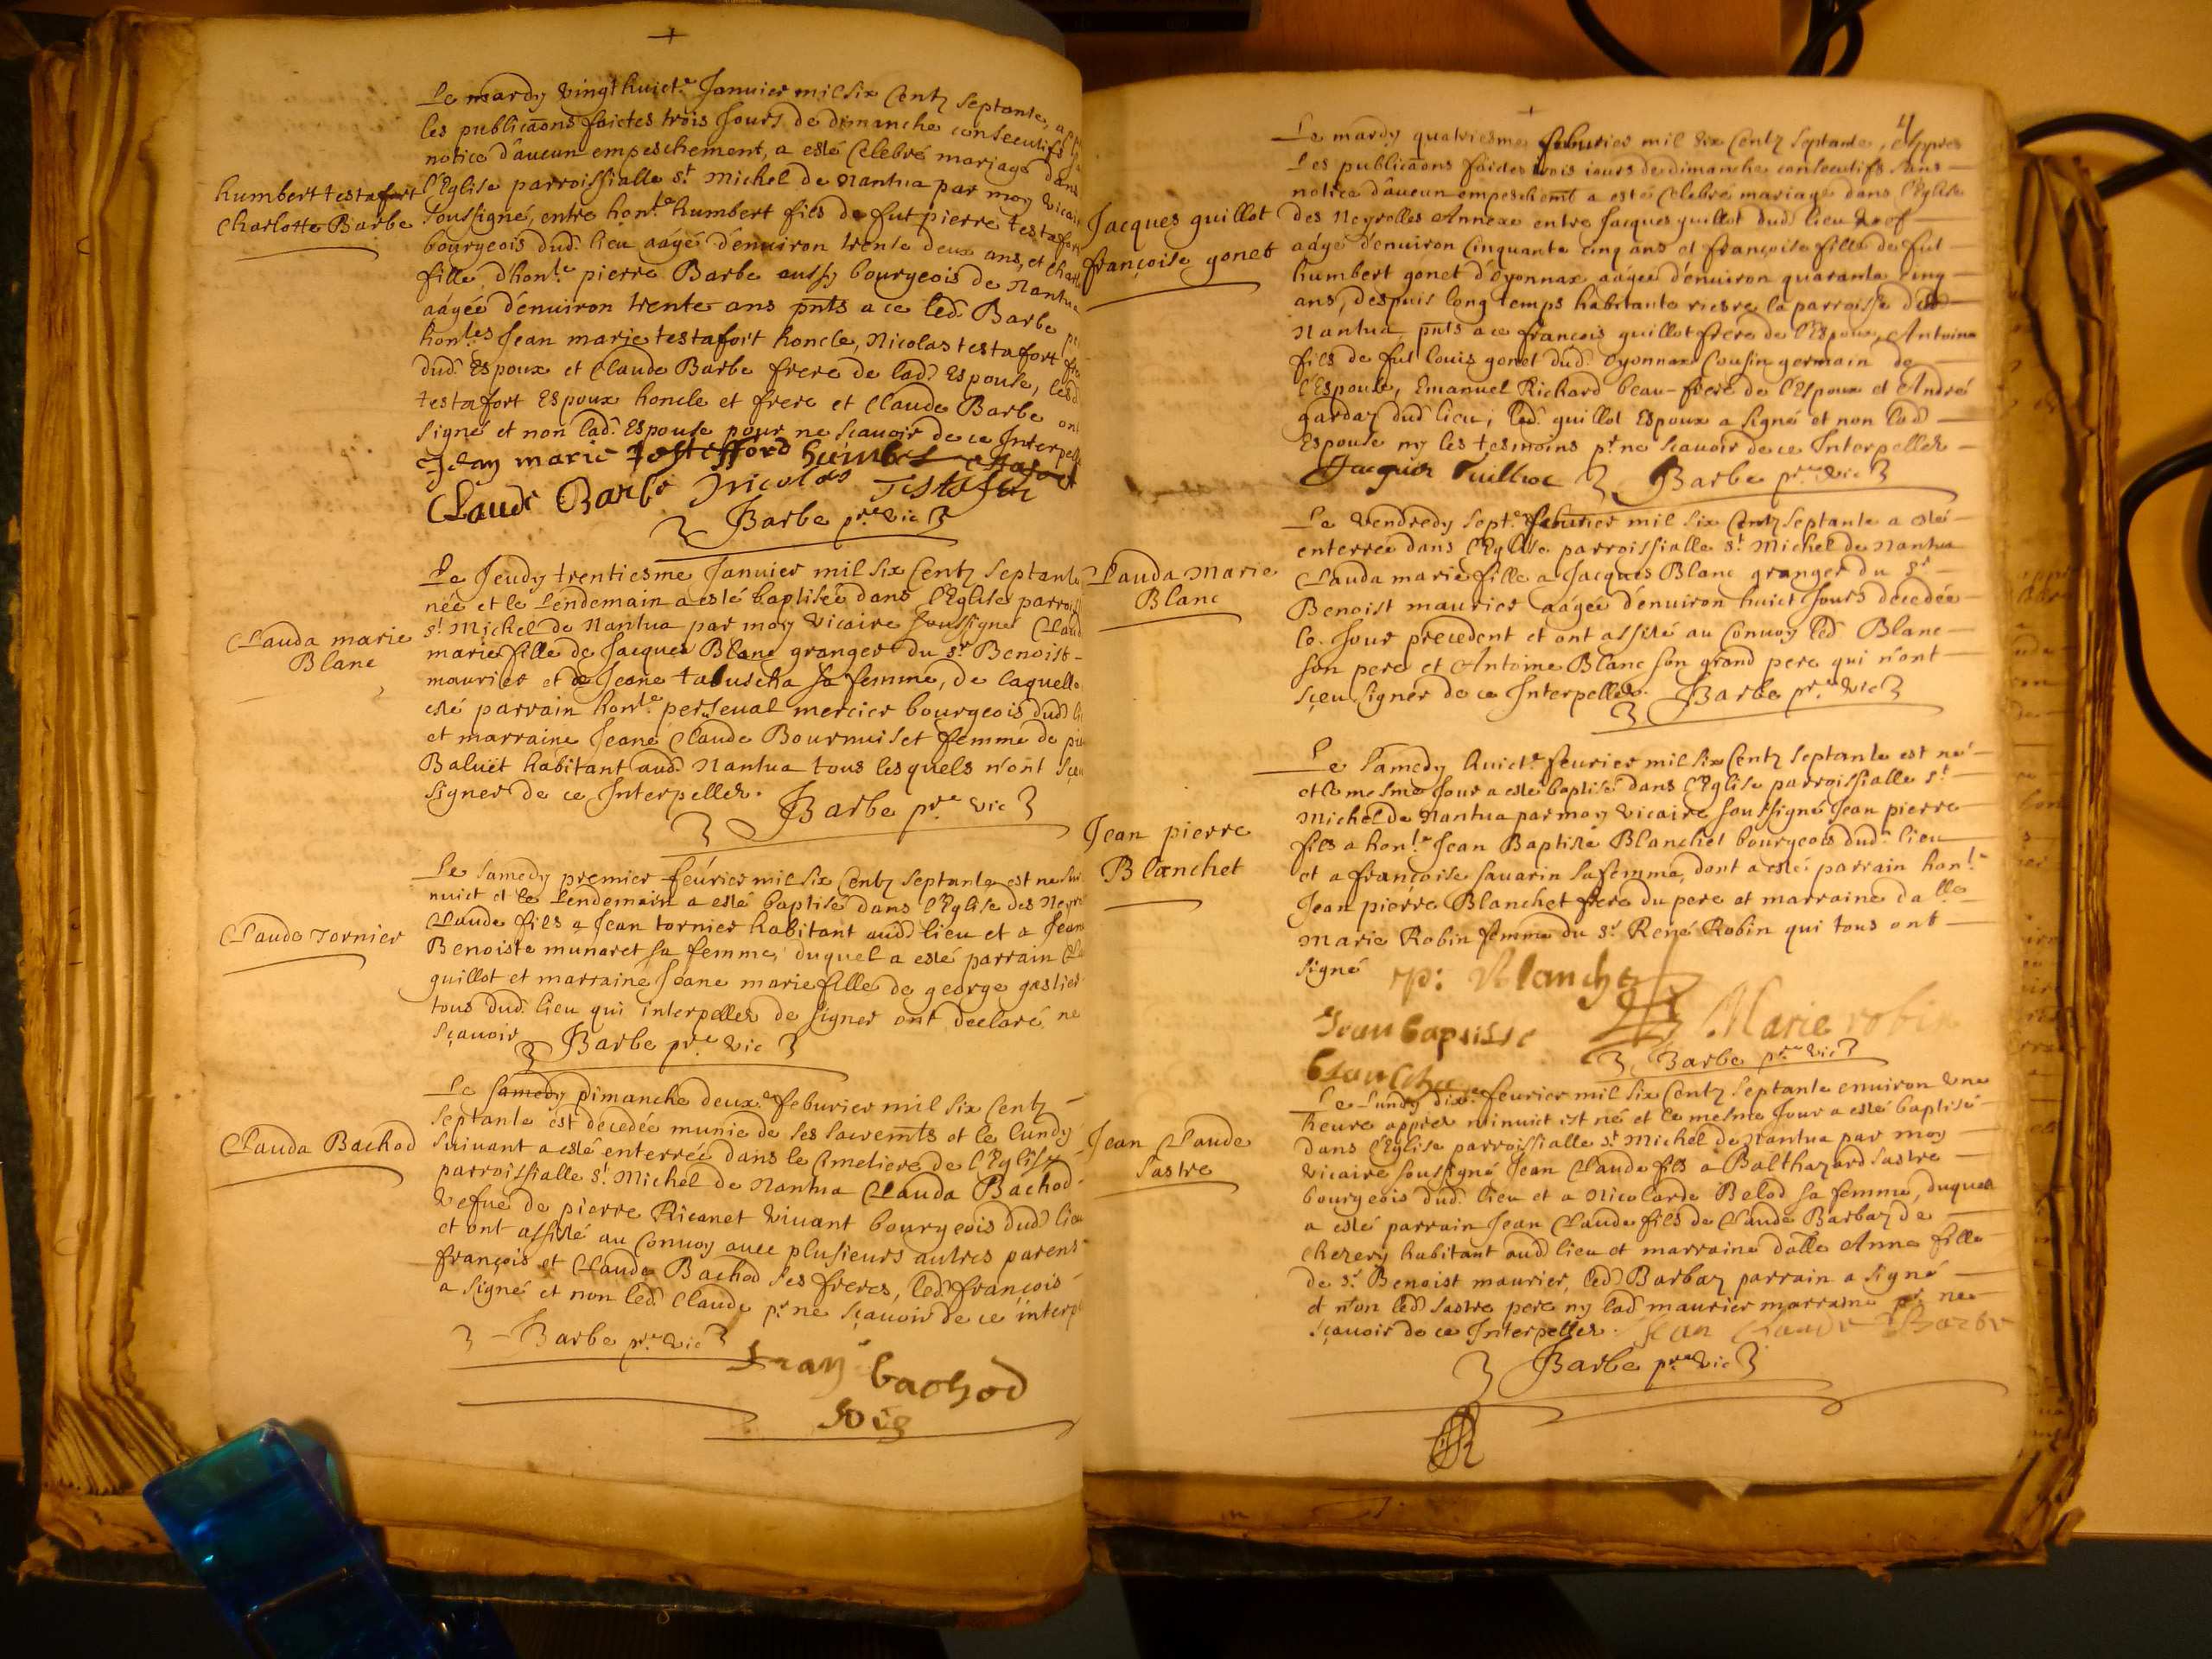 Le mardy vingt huict.e Januier mil six Centz septante, a
les publicaõns faictes trois Jours de dimanche consecutifs
notice d'aucun empeschement, a esté Celebré mariage dans
humbert testafort
l'Eglise parroissialle s.t Michel de Nantua par moy vicai
Charlotte Barbe
soussigné, entre hon.le humbert fils de fut pierre testafort
bourgeois dud. lieu aágé d'enuiron trente deux ans, et Charl
fille d'hon.le pierre Barbe aussy bourgeois de Nantua
aágée d'enuiron trente ans pnts a ce led. Barbe pe
hon.les Jean marie testafort honcle, Nicolas testafort fre
dud. Espoux et Claude Barbe frere de lad. Espouse, lesd
testafort Espoux honcle et frere et Claude Barbe ont
signé et non lad. Espouse pour ne sçauoir de ce Interpell
Jean marie
Claude Barbe Nicolas Testafort
Barbe pr.e vic
Le Jeudy trentiesme Januier mil six Centz septante
née et le Lendemain a esté baptisée dans l'Eglise parroiss
Clauda marie
Blanc
s.t Michel de Nantua par moy vicaire soussigné Claud
marie fille de Jacques Blanc granger du s.r Benoist
maurier et de Jeane tabuscha sa femme, de laquelle
esté parrain hon.le perseual mercier bourgeois dud. li
et marraine Jeane Claude Bournuiset femme de pi
Baluet habitant aud. Nantua tous lesquels n'ont sçeu
signer de ce Interpeller.
Barbe pr.e vic
Le samedy premier féurier mil six Centz septante est ne sur
nuict et le Lendemain a esté baptisé dans l'Eglise des Neyro
Claude Tornier
Claude fils a Jean tornier habitant aud. lieu et a Jeane
Benoiste munaret sa femme, duquel a esté parrain Cl
guillot et marraine Jeane marie fille de george gastier
tous dud. lieu qui interpeller de signer ont declaré ne
sçauoir
Barbe pr.e vic
Le samedy Dimanche deux.e feburier mil six Centz
septante est decedée munie de ses sacremts et le lundy
Clauda Bachod
suiuant a esté enterrée dans le Cimetiere de l'Eglise
parroissialle s.t Michel de Nantua Clauda Bachod
vefue de pierre Ricanet viuant bourgeois dud. lieu
et ont assisté au Conuoy auec plusieurs autres parens
françois et Claude Bachod ses freres, led. françois
a signé et non led. Claude p.r ne sçauoir de ce interp
Barbe pr.e vic
bachod
4
Le mardy quatriesme feburier mil six Centz septante, Appres
Les publicaõns faictes trois iours de dimanche consecutifs sans
notice d'aucun empeschemt a esté Celebré mariage dans l'Eglise
Jacques guillot
des Neyrolles Annexe entre Jacques guillot dud. lieu veof
françoise gonet
aágé d'enuiron Cinquante cinq ans et françoise fille de fut
humbert gonet d'oyonnax aágée d'enuiron quarante cinq
ans, despuis long temps habitante riesre la parroisse dud
Nantua pnts a ce françois guillot frere de l'Espoux, Antoine
fils de fut louis gonet dud. oyonnax Cousin germain de
l'Espouse, Emanuel Richard beau-frere de l'Espoux et André
gardaz dud. lieu; led. guillot Espoux a signé et non lad
Espouse ny les tesmoins p.r ne sçauoir de ce Interpeller
Barbe pr.e vic
Le Vendredy sept.e feburier mil six Centz septante a esté
enterrée dans l'Eglise parroissialle s.t Michel de Nantua
Clauda Marie
Blanc
Clauda marie fille a Jacques Blanc granger du s.r
Benoist maurier aágée d'enuiron huict Jours decedée
le Jour precedent et ont assisté au Conuoy led. Blanc
son pere et Antoine Blanc son grand pere qui n'ont
sçeu signer de ce Interpeller.
Barbe pr.e vic
Le samedy huict.e feurier mil six Centz septante est né
et le mesme Jour a esté baptisé dans l'Eglise parroissialle s.t
Michel de Nantua par moy vicaire soussigné Jean pierre
Jean pierre
Blanchet
fils a hon.le Jean Baptiste Blanchet bourgeois dud. lieu
et a françoise sauarin sa femme, dont a esté parrain hon.le
Jean pierre Blanchet frere du pere et marraine da.lle
Marie Robin femme du s.r René Robin qui tous ont
signé
Jp: Blanchet
Jean baptiste
Marie robin
Barbe pr.e vic
Le Lundy dix.e feurier mil six Centz septante enuiron vne
heure appres minuict est né et le mesme Jour a esté baptisé
Jean Claude
Sastre
dans l'Eglise parroissialle s.t Michel de Nantua par moy
vicaire soussigné Jean Claude fils a Balthazard sastre
bourgeois dud. lieu et a Nicolarde Belod sa femme, duquel
a esté parrain Jean Claude fils de Claude Barbaz de
Chezery habitant aud. lieu et marraine dalle Anne fille
de s.r Benoist maurier, led. Barbaz parrain a signé
et non led. sastre pere ny lad. maurier marraine p.r ne
sçauoir de ce Interpeller.
Jean Claude Barbe
Barbe pr.e vic